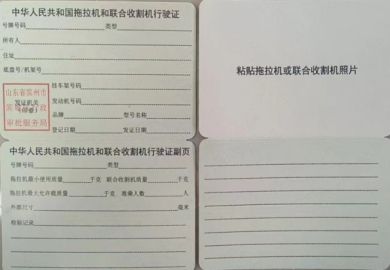 中华人民共和国拖拉机和联合收割机行驶证
号牌号码 类型
所有人
住址
底盘号/机架号
挂车架号码
发动机号码
品牌 型号名称
登记日期 发证日期
山东省滨州市
发证机关
(印章)
审批服务局
粘贴拖拉机或联合收割机照片
中华人民共和国拖拉机和联合收割机行驶证副页
号牌号码 类型
拖拉机最小使用质量 千克 联合收割机质量 千克
拖拉机最大允许载质量 千克 准乘人数 人
外廓尺寸 毫米
检验记录